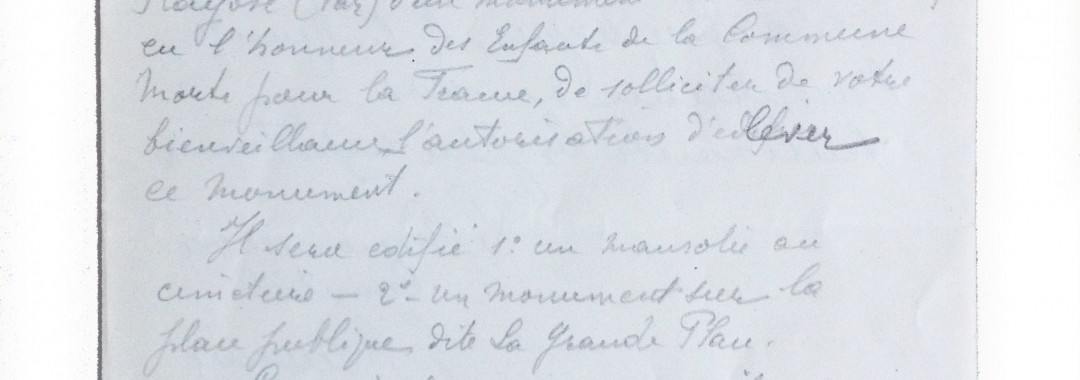 (Var) d'un monument
en l'honneur des Enfants de la Commune
Morts pour la France, de solliciter de votre
bienveillance l'autorisation d'élever
ce monument.
Il sera édifié 1° un mausolée au
cimetière — 2° - un monument sur la
place publique dite La Grande Place.